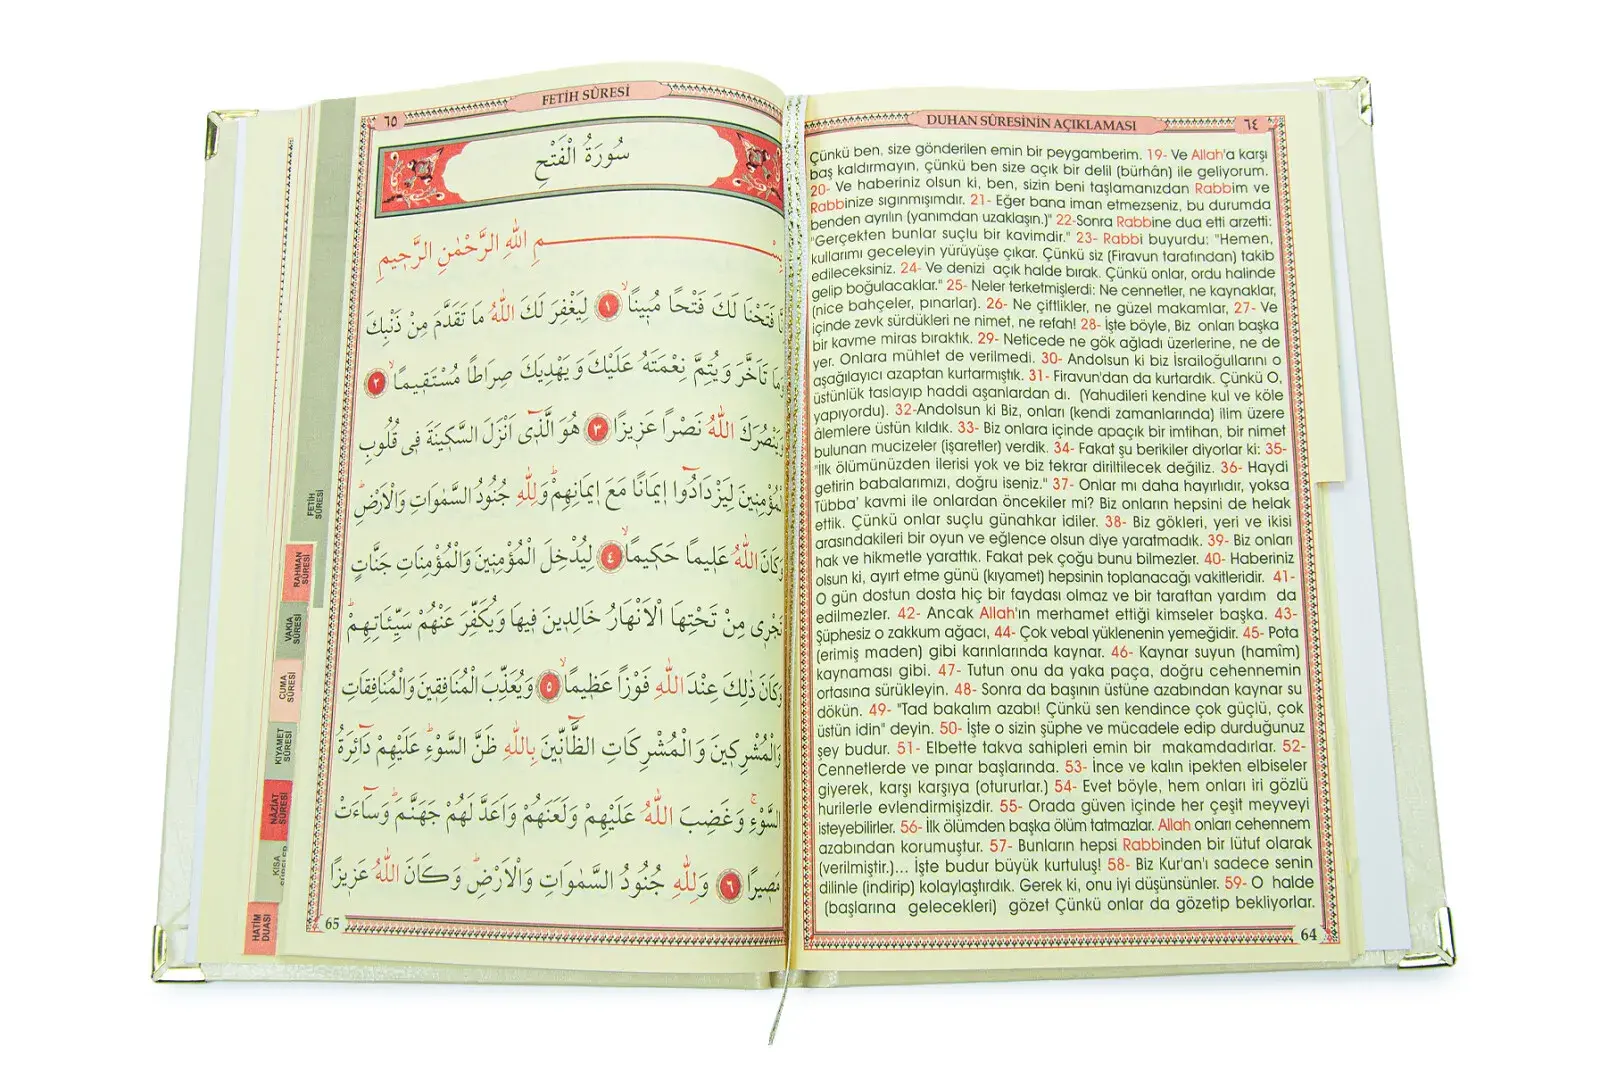 DUHAN SÛRESİNİN AÇIKLAMASI
٦٤
Çünkü ben, size gönderilen emin bir peygamberim. 19- Ve Allah'a karşı
baş kaldırmayın, çünkü ben size açık bir delil (bürhân) ile geliyorum.
20- Ve haberiniz olsun ki, ben, sizin beni taşlamanızdan Rabbim ve
Rabbinize sıgınmışımdır. 21- Eğer bana iman etmezseniz, bu durumda
benden ayrılın (yanımdan uzaklaşın.)" 22-Sonra Rabbine dua etti arzetti:
"Gerçekten bunlar suçlu bir kavimdir." 23- Rabbi buyurdu: "Hemen,
kullarımı geceleyin yürüyüşe çıkar. Çünkü siz (Firavun tarafından) takib
edileceksiniz. 24- Ve denizi açık halde bırak. Çünkü onlar, ordu halinde
gelip boğulacaklar." 25- Neler terketmişlerdi: Ne cennetler, ne kaynaklar,
(nice bahçeler, pınarlar). 26- Ne çiftlikler, ne güzel makamlar, 27- Ve
içinde zevk sürdükleri ne nimet, ne refah! 28- İşte böyle, Biz onları başka
bir kavme miras bıraktık. 29- Neticede ne gök ağladı üzerlerine, ne de
yer. Onlara mühlet de verilmedi. 30- Andolsun ki biz İsrailoğullarını o
aşağılayıcı azaptan kurtarmıştık. 31- Firavun'dan da kurtardık. Çünkü O,
üstünlük taslayıp haddi aşanlardan dı. (Yahudileri kendine kul ve köle
yapıyordu). 32-Andolsun ki Biz, onları (kendi zamanlarında) ilim üzere
âlemlere üstün kıldık. 33- Biz onlara içinde apaçık bir imtihan, bir nimet
bulunan mucizeler (işaretler) verdik. 34- Fakat şu berikiler diyorlar ki: 35-
"İlk ölümünüzden ilerisi yok ve biz tekrar diriltilecek değiliz. 36- Haydi
getirin babalarımızı, doğru iseniz." 37- Onlar mı daha hayırlıdır, yoksa
Tübba' kavmi ile onlardan öncekiler mi? Biz onların hepsini de helak
ettik. Çünkü onlar suçlu günahkar idiler. 38- Biz gökleri, yeri ve ikisi
arasındakileri bir oyun ve eğlence olsun diye yaratmadık. 39- Biz onları
hak ve hikmetle yarattık. Fakat pek çoğu bunu bilmezler. 40- Haberiniz
olsun ki, ayırt etme günü (kıyamet) hepsinin toplanacağı vakitleridir. 41-
O gün dostun dosta hiç bir faydası olmaz ve bir taraftan yardım da
edilmezler. 42- Ancak Allah'ın merhamet ettiği kimseler başka. 43-
Şüphesiz o zakkum ağacı, 44- Çok vebal yüklenenin yemeğidir. 45- Pota
(erimiş maden) gibi karınlarında kaynar. 46- Kaynar suyun (hamîm)
kaynaması gibi. 47- Tutun onu da yaka paça, doğru cehennemin
ortasına sürükleyin. 48- Sonra da başının üstüne azabından kaynar su
dökün. 49- "Tad bakalım azabı! Çünkü sen kendince çok güçlü, çok
üstün idin" deyin. 50- İşte o sizin şüphe ve mücadele edip durduğunuz
şey budur. 51- Elbette takva sahipleri emin bir makamdadırlar. 52-
Cennetlerde ve pınar başlarında. 53- İnce ve kalın ipekten elbiseler
giyerek, karşı karşıya (otururlar.) 54- Evet böyle, hem onları iri gözlü
hurilerle evlendirmişizdir. 55- Orada güven içinde her çeşit meyveyi
isteyebilirler. 56- İlk ölümden başka ölüm tatmazlar. Allah onları cehennem
azabından korumuştur. 57- Bunların hepsi Rabbinden bir lütuf olarak
(verilmiştir.)... İşte budur büyük kurtuluş! 58- Biz Kur'an'ı sadece senin
dilinle (indirip) kolaylaştırdık. Gerek ki, onu iyi düşünsünler. 59- O halde
(başlarına gelecekleri) gözet Çünkü onlar da gözetip bekliyorlar.
64
FETİH SÛRESİ
٦٥
سُورَةُ الْفَتْحِ
بِسْمِ اللّٰهِ الرَّحْمٰنِ الرَّحِيمِ
فَتَحْنَا لَكَ فَتْحًا مُبِينًاۙ ١ لِيَغْفِرَ لَكَ اللّٰهُ مَا تَقَدَّمَ مِنْ ذَنْبِكَ
وَمَا تَاَخَّرَ وَيُتِمَّ نِعْمَتَهُ عَلَيْكَ وَيَهْدِيَكَ صِرَاطًا مُسْتَقِيمًاۙ ٢
وَيَنْصُرَكَ اللّٰهُ نَصْرًا عَزِيزًا ٣ هُوَ الَّذِٓى اَنْزَلَ السَّكِينَةَ فِى قُلُوبِ
الْمُؤْمِنِينَ لِيَزْدَادُٓوا اِيمَانًا مَعَ اِيمَانِهِمْۜ وَلِلّٰهِ جُنُودُ السَّمٰوَاتِ وَالْاَرْضِۜ
وَكَانَ اللّٰهُ عَلِيمًا حَكِيمًاۙ ٤ لِيُدْخِلَ الْمُؤْمِنِينَ وَالْمُؤْمِنَاتِ جَنَّاتٍ
تَجْرِى مِنْ تَحْتِهَا الْاَنْهَارُ خَالِدِينَ فِيهَا وَيُكَفِّرَ عَنْهُمْ سَيِّـَٔاتِهِمْۜ
وَكَانَ ذٰلِكَ عِنْدَ اللّٰهِ فَوْزًا عَظِيمًاۙ ٥ وَيُعَذِّبَ الْمُنَافِقِينَ وَالْمُنَافِقَاتِ
وَالْمُشْرِكِينَ وَالْمُشْرِكَاتِ الظَّٓانِّينَ بِاللّٰهِ ظَنَّ السَّوْءِۜ عَلَيْهِمْ دَٓائِرَةُ
السَّوْءِۚ وَغَضِبَ اللّٰهُ عَلَيْهِمْ وَلَعَنَهُمْ وَاَعَدَّ لَهُمْ جَهَنَّمَۜ وَسَٓاءَتْ
مَصِيرًا ٦ وَلِلّٰهِ جُنُودُ السَّمٰوَاتِ وَالْاَرْضِۜ وَكَانَ اللّٰهُ عَزِيزًا
65
FETİH
SÛRESİ
RAHMAN
SÛRESİ
VAKIA
SÛRESİ
CUMA
SÛRESİ
KIYAMET
SÛRESİ
NÂZİAT
SÛRESİ
KISA
HATİM
DUASI